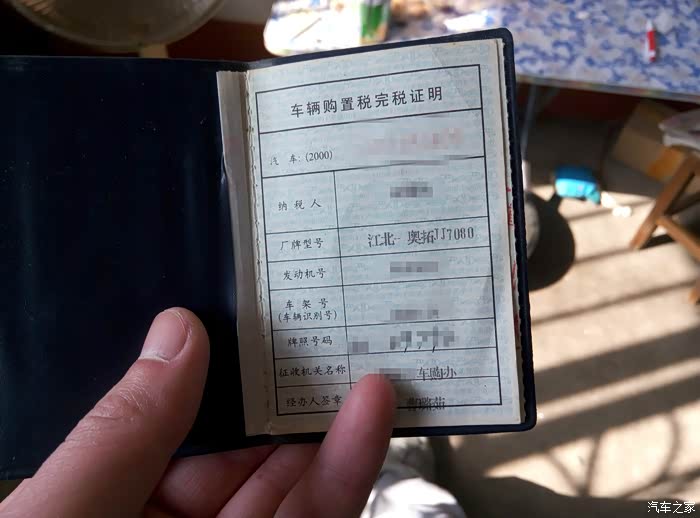 车辆购置税完税证明
汽 车: (2000)
纳税人
厂牌型号 江北 奥拓JJ7080
发动机号
车架号
(车辆识别号)
牌照号码
征收机关名称 车购办
经办人签章
汽车之家